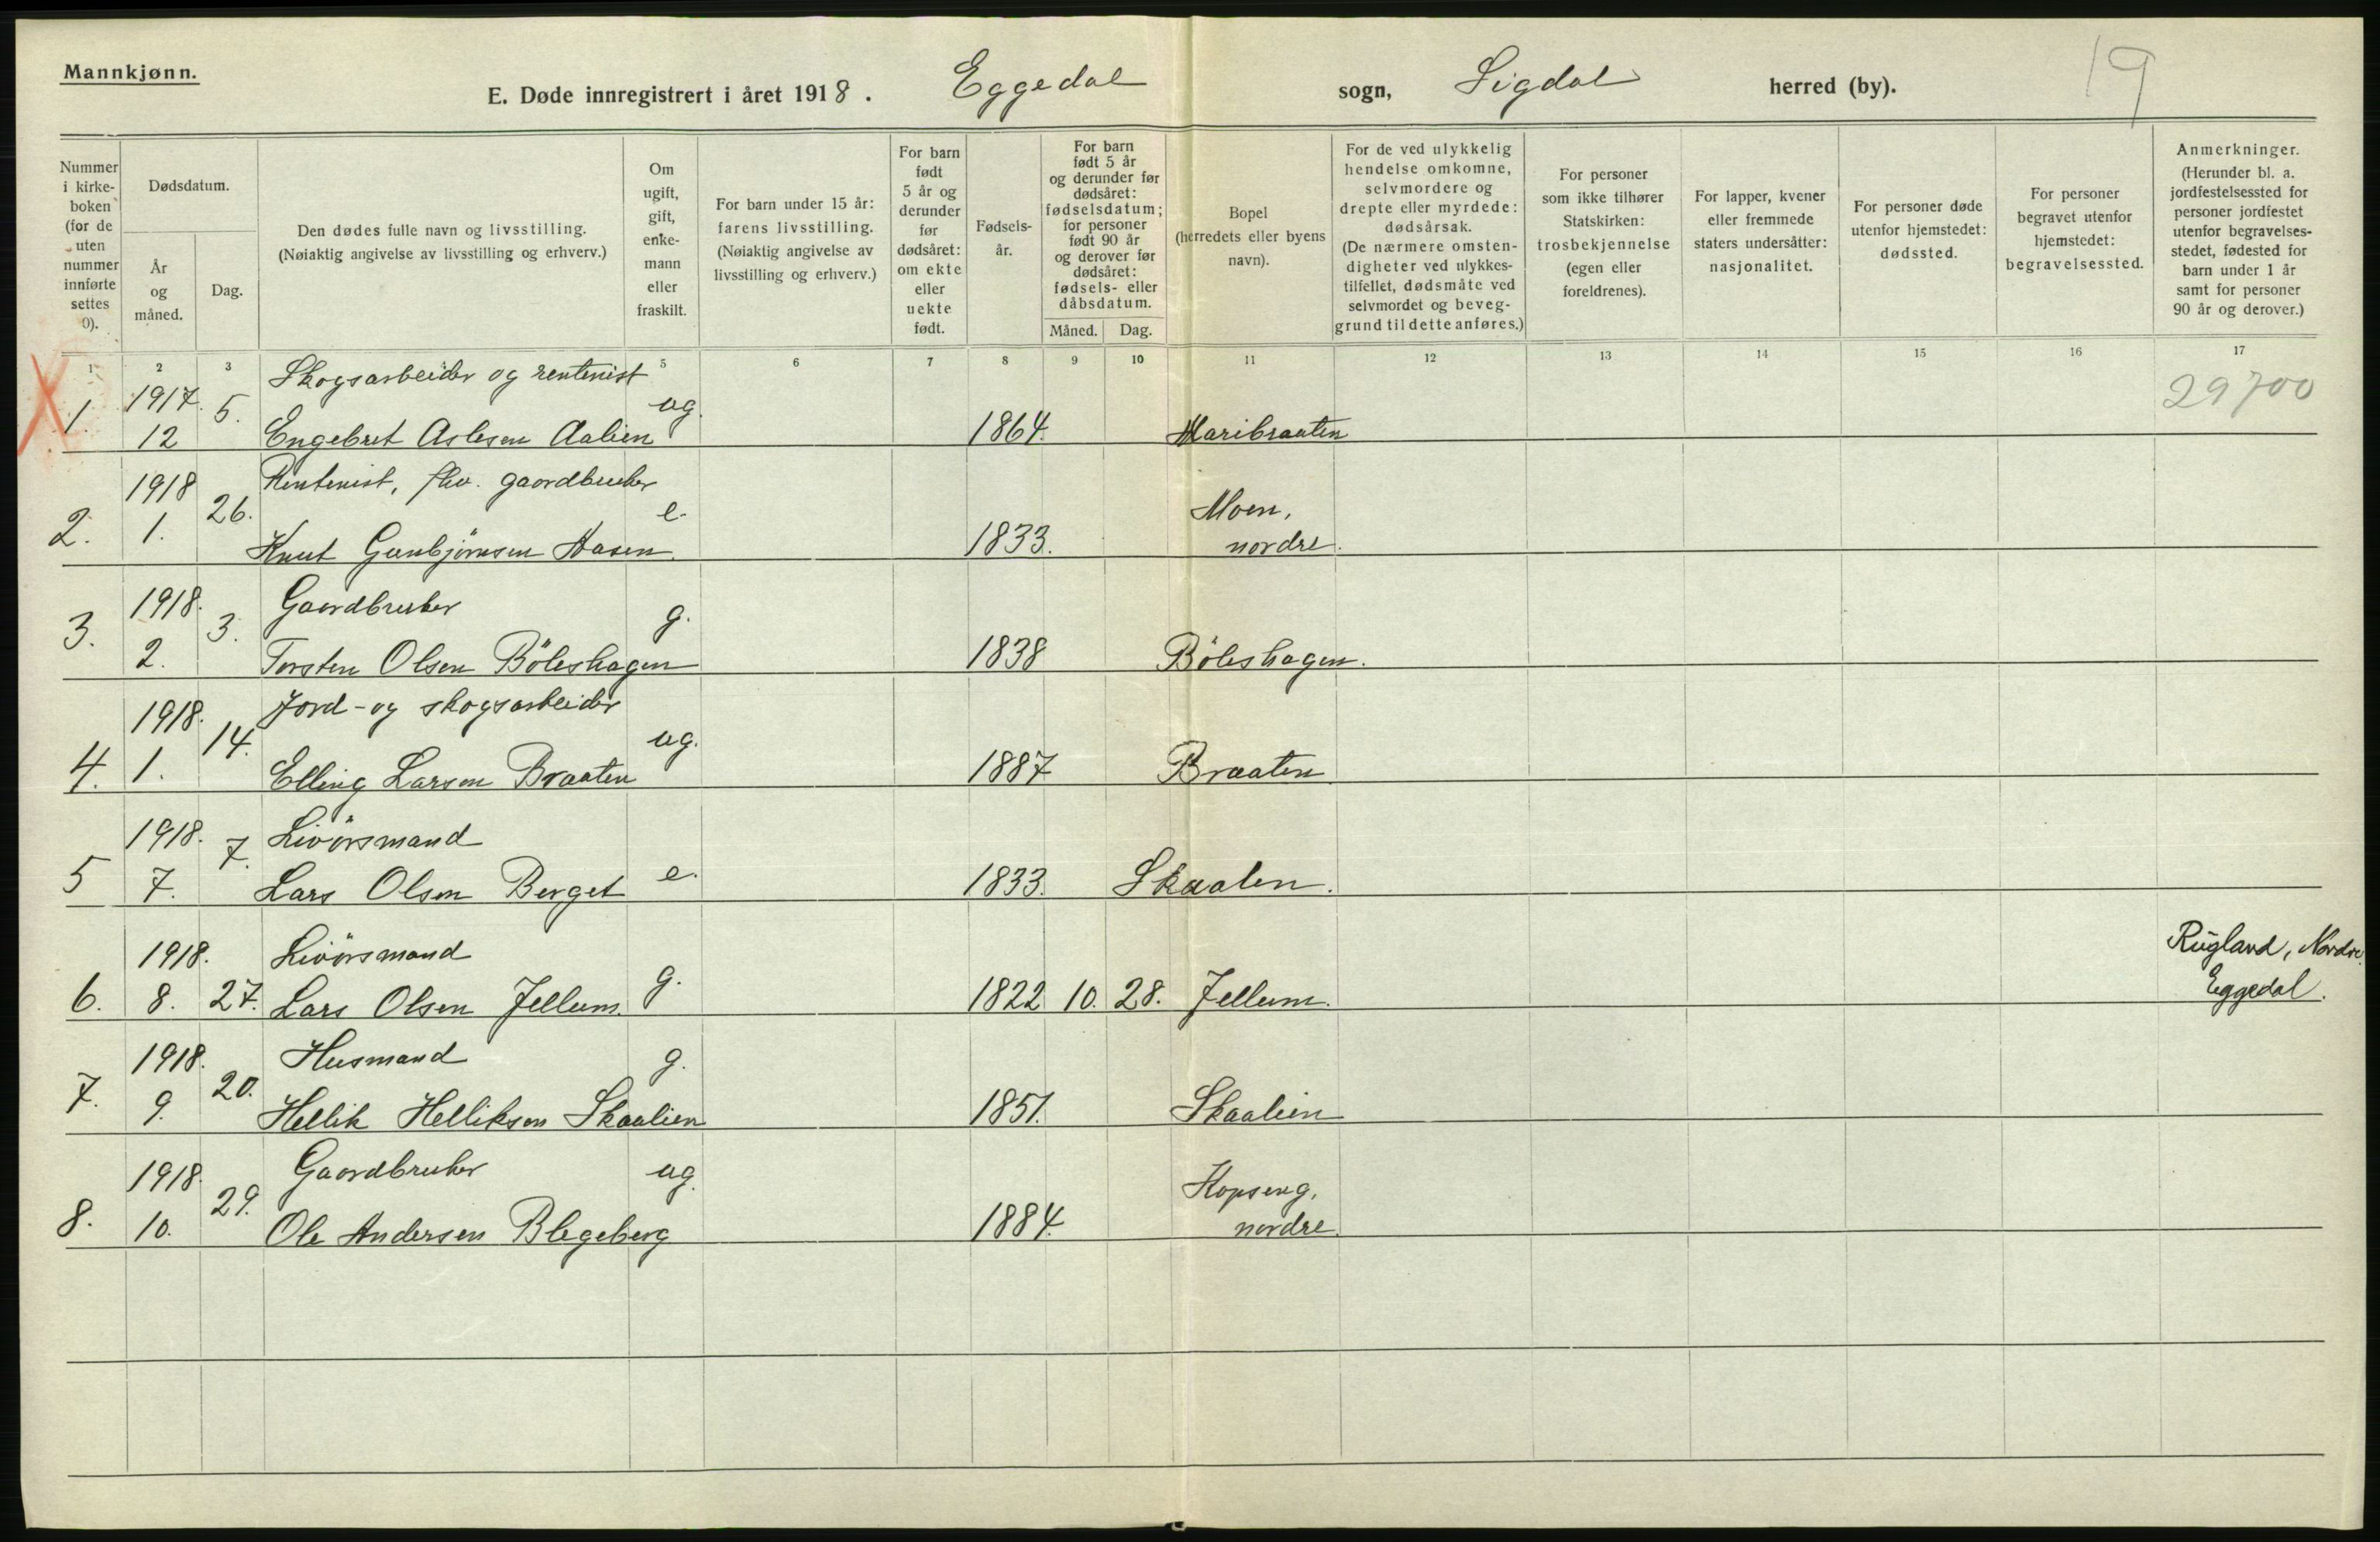 Mannkjønn.
E. Døde innregistrert i året 1918. Eggedal sogn, Sigdal herred (by).
19
Nummer i kirkeboken (for de uten nummer innførte settes 0).
Dødsdatum.
År og måned.
Dag.
Den dødes fulle navn og livsstilling.
(Nøiaktig angivelse av livsstilling og erhverv.)
Om ugift, gift, enkemann eller fraskilt.
For barn under 15 år: farens livsstilling.
(Nøiaktig angivelse av livsstilling og erhverv.)
For barn født 5 år og derunder før dødsåret: om ekte eller uekte født.
Fødselsår.
For barn født 5 år og derunder før dødsåret: fødselsdatum; for personer født 90 år og derover før dødsåret: fødsels- eller dåbsdatum.
Måned.
Dag.
Bopel (herredets eller byens navn).
For de ved ulykkelig hendelse omkomne, selvmordere og drepte eller myrdede: dødsårsak.
(De nærmere omstendigheter ved ulykkestilfellet, dødsmåte ved selvmordet og beveggrund til dette anføres.)
For personer som ikke tilhører Statskirken: trosbekjennelse (egen eller foreldrenes).
For lapper, kvener eller fremmede staters undersåtter: nasjonalitet.
For personer døde utenfor hjemstedet: dødssted.
For personer begravet utenfor hjemstedet: begravelsessted.
Anmerkninger.
(Herunder bl. a. jordfestelsessted for personer jordfestet utenfor begravelsesstedet, fødested for barn under 1 år samt for personer 90 år og derover.)
1 2 3 5 6 7 8 9 10 11 12 13 14 15 16 17
X 1. 1917. 12 5. Skogsarbeider og rentenist
Engebret Aslesen Aalien ug. 1864. Maribraaten 29700
2. 1918 1. 26. Rentenist, fhv. gaardbruker
Knut Gunbjørnsen Aasen e. 1833. Moen, nordre.
3. 1918. 2. 3. Gaardbruker
Torsten Olsen Böleshagen g. 1838 Böleshagen.
4. 1918. 1. 14. Jord- og skogsarbeider
Elling Larsen Braaten ug. 1887 Braaten
5 1918. 7. 7. Livörsmand
Lars Olsen Berget e. 1833. Skaalen.
6. 1918. 8. 27. Livörsmand
Lars Olsen Jellum. g. 1822 10. 28. Jellum. Rugland, Nordre Eggedal.
7. 1918. 9. 20. Husmand
Hellik Helliksen Skaalien g. 1851. Skaalien
8. 1918. 10. 29. Gaardbruker
Ole Andersen Blegeberg ug. 1884. Kopseng, nordre.